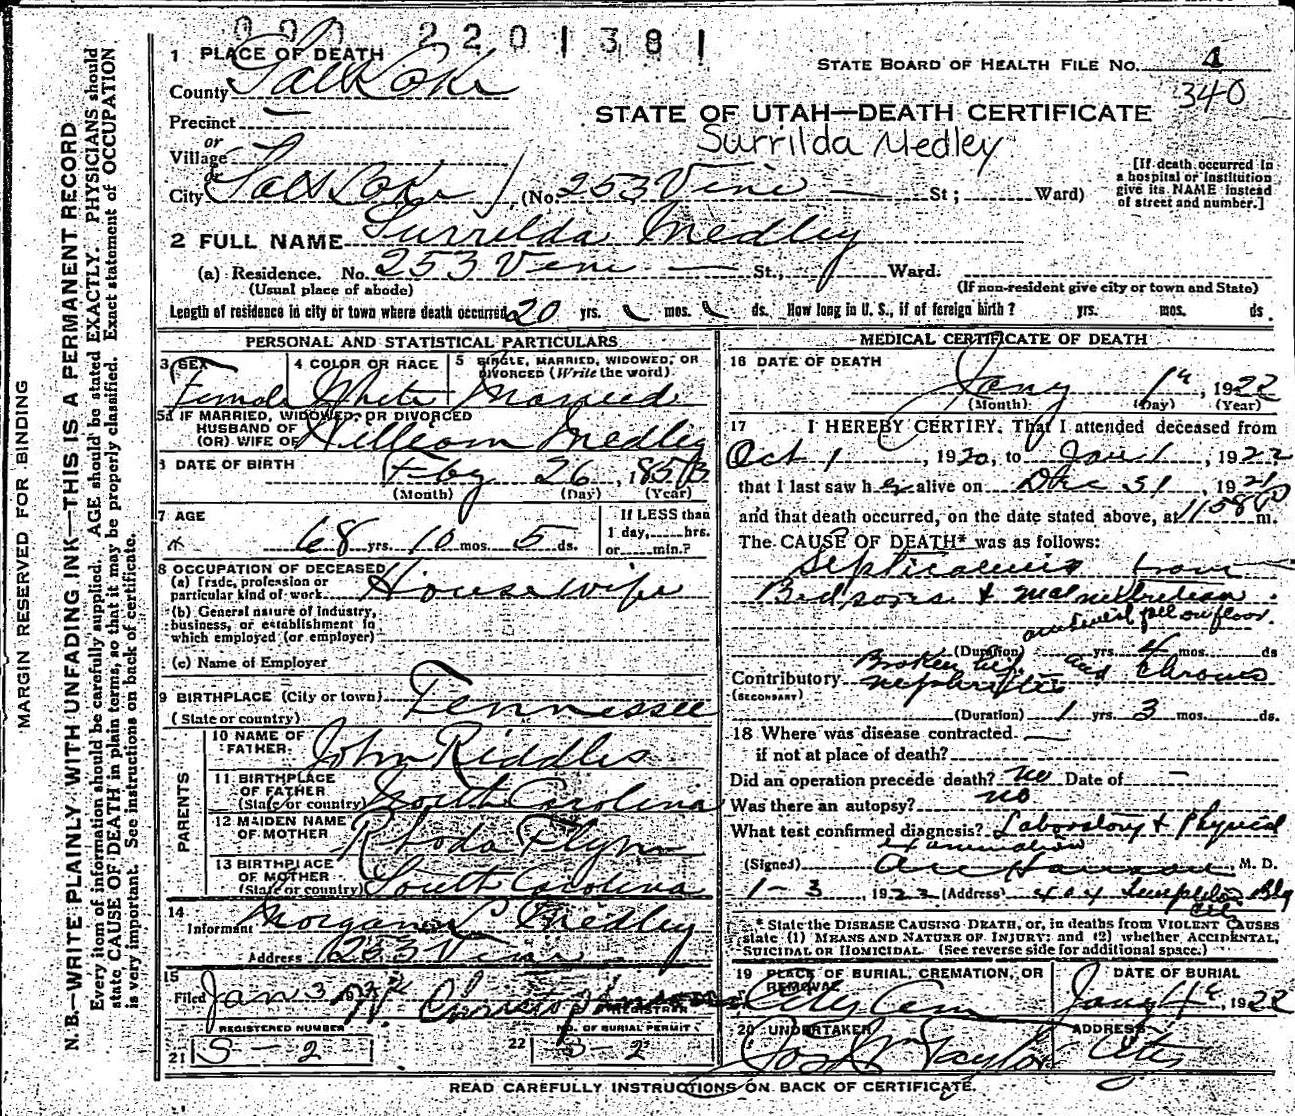 000 220138
1 PLACE OF DEATH
STATE BOARD OF HEALTH FILE NO. 4
340
County Salt Lake
STATE OF UTAH—DEATH CERTIFICATE
Precinct
Surrilda Medley
or
Village
or
City Salt Lake (No. 253 Vine St; Ward)
[If death occurred in
a hospital or institution
give its NAME instead
of street and number.]
2 FULL NAME Surrilda Medley
(a) Residence. No. 253 Vine St., Ward.
(Usual place of abode)
(If non-resident give city or town and State)
Length of residence in city or town where death occurred 20 yrs. mos. ds. How long in U. S., if of foreign birth? yrs. mos. ds.
PERSONAL AND STATISTICAL PARTICULARS
3 SEX
Female
4 COLOR OR RACE
White
5 SINGLE, MARRIED, WIDOWED, OR
DIVORCED (Write the word)
Married
5a IF MARRIED, WIDOWED, OR DIVORCED
HUSBAND OF
(OR) WIFE OF William Medley
6 DATE OF BIRTH Feby 26, 1853
(Month) (Day) (Year)
7 AGE
68 yrs. 10 mos. 5 ds.
If LESS than
1 day, hrs.
or min.?
8 OCCUPATION OF DECEASED
(a) Trade, profession or
particular kind of work Housewife
(b) General nature of industry,
business, or establishment in
which employed (or employer)
(c) Name of Employer
9 BIRTHPLACE (City or town)
(State or country) Tennessee
PARENTS
10 NAME OF
FATHER John Riddles
11 BIRTHPLACE
OF FATHER
(State or country) South Carolina
12 MAIDEN NAME
OF MOTHER Rhoda Flynn
13 BIRTHPLACE
OF MOTHER
(State or country) South Carolina
14
Informant Morgan L Medley
Address 253 Vine
15
Filed Jan 3 1922
REGISTRAR
REGISTERED NUMBER
NO. OF BURIAL PERMIT
21 S-2
22 S-2
MEDICAL CERTIFICATE OF DEATH
16 DATE OF DEATH
Jany 1st, 1922
(Month) (Day) (Year)
17 I HEREBY CERTIFY, That I attended deceased from
Oct 1, 1920, to Jan 1, 1922
that I last saw her alive on Dec 31 1921
and that death occurred, on the date stated above, at 1158 P m.
The CAUSE OF DEATH* was as follows:
Septicaemia from
Bedsores & malnutrition
fell on floor.
(Duration) yrs. 4 mos. ds
Contributory Broken hip and chronic
(SECONDARY) nephritis
(Duration) 1 yrs. 3 mos. ds.
18 Where was disease contracted
if not at place of death?
Did an operation precede death? no Date of —
Was there an autopsy? no
What test confirmed diagnosis? Laboratory & Physical
examination
(Signed) M. D.
1-3, 1922 (Address) Templeton Bldg
City
* State the DISEASE CAUSING DEATH, or, in deaths from VIOLENT CAUSES
state (1) MEANS AND NATURE OF INJURY; and (2) whether ACCIDENTAL,
SUICIDAL OR HOMICIDAL. (See reverse side for additional space.)
19 PLACE OF BURIAL, CREMATION, OR
REMOVAL
City Cem
DATE OF BURIAL
Jany 4th, 1922
20 UNDERTAKER
Jos Wm Taylor
ADDRESS
City
READ CAREFULLY INSTRUCTIONS ON BACK OF CERTIFICATE.
MARGIN RESERVED FOR BINDING
N. B.—WRITE PLAINLY WITH UNFADING INK—THIS IS A PERMANENT RECORD
Every item of information should be carefully supplied. AGE should be stated EXACTLY. PHYSICIANS should
state CAUSE OF DEATH in plain terms, so that it may be properly classified. Exact statement of OCCUPATION
is very important. See instructions on back of certificate.